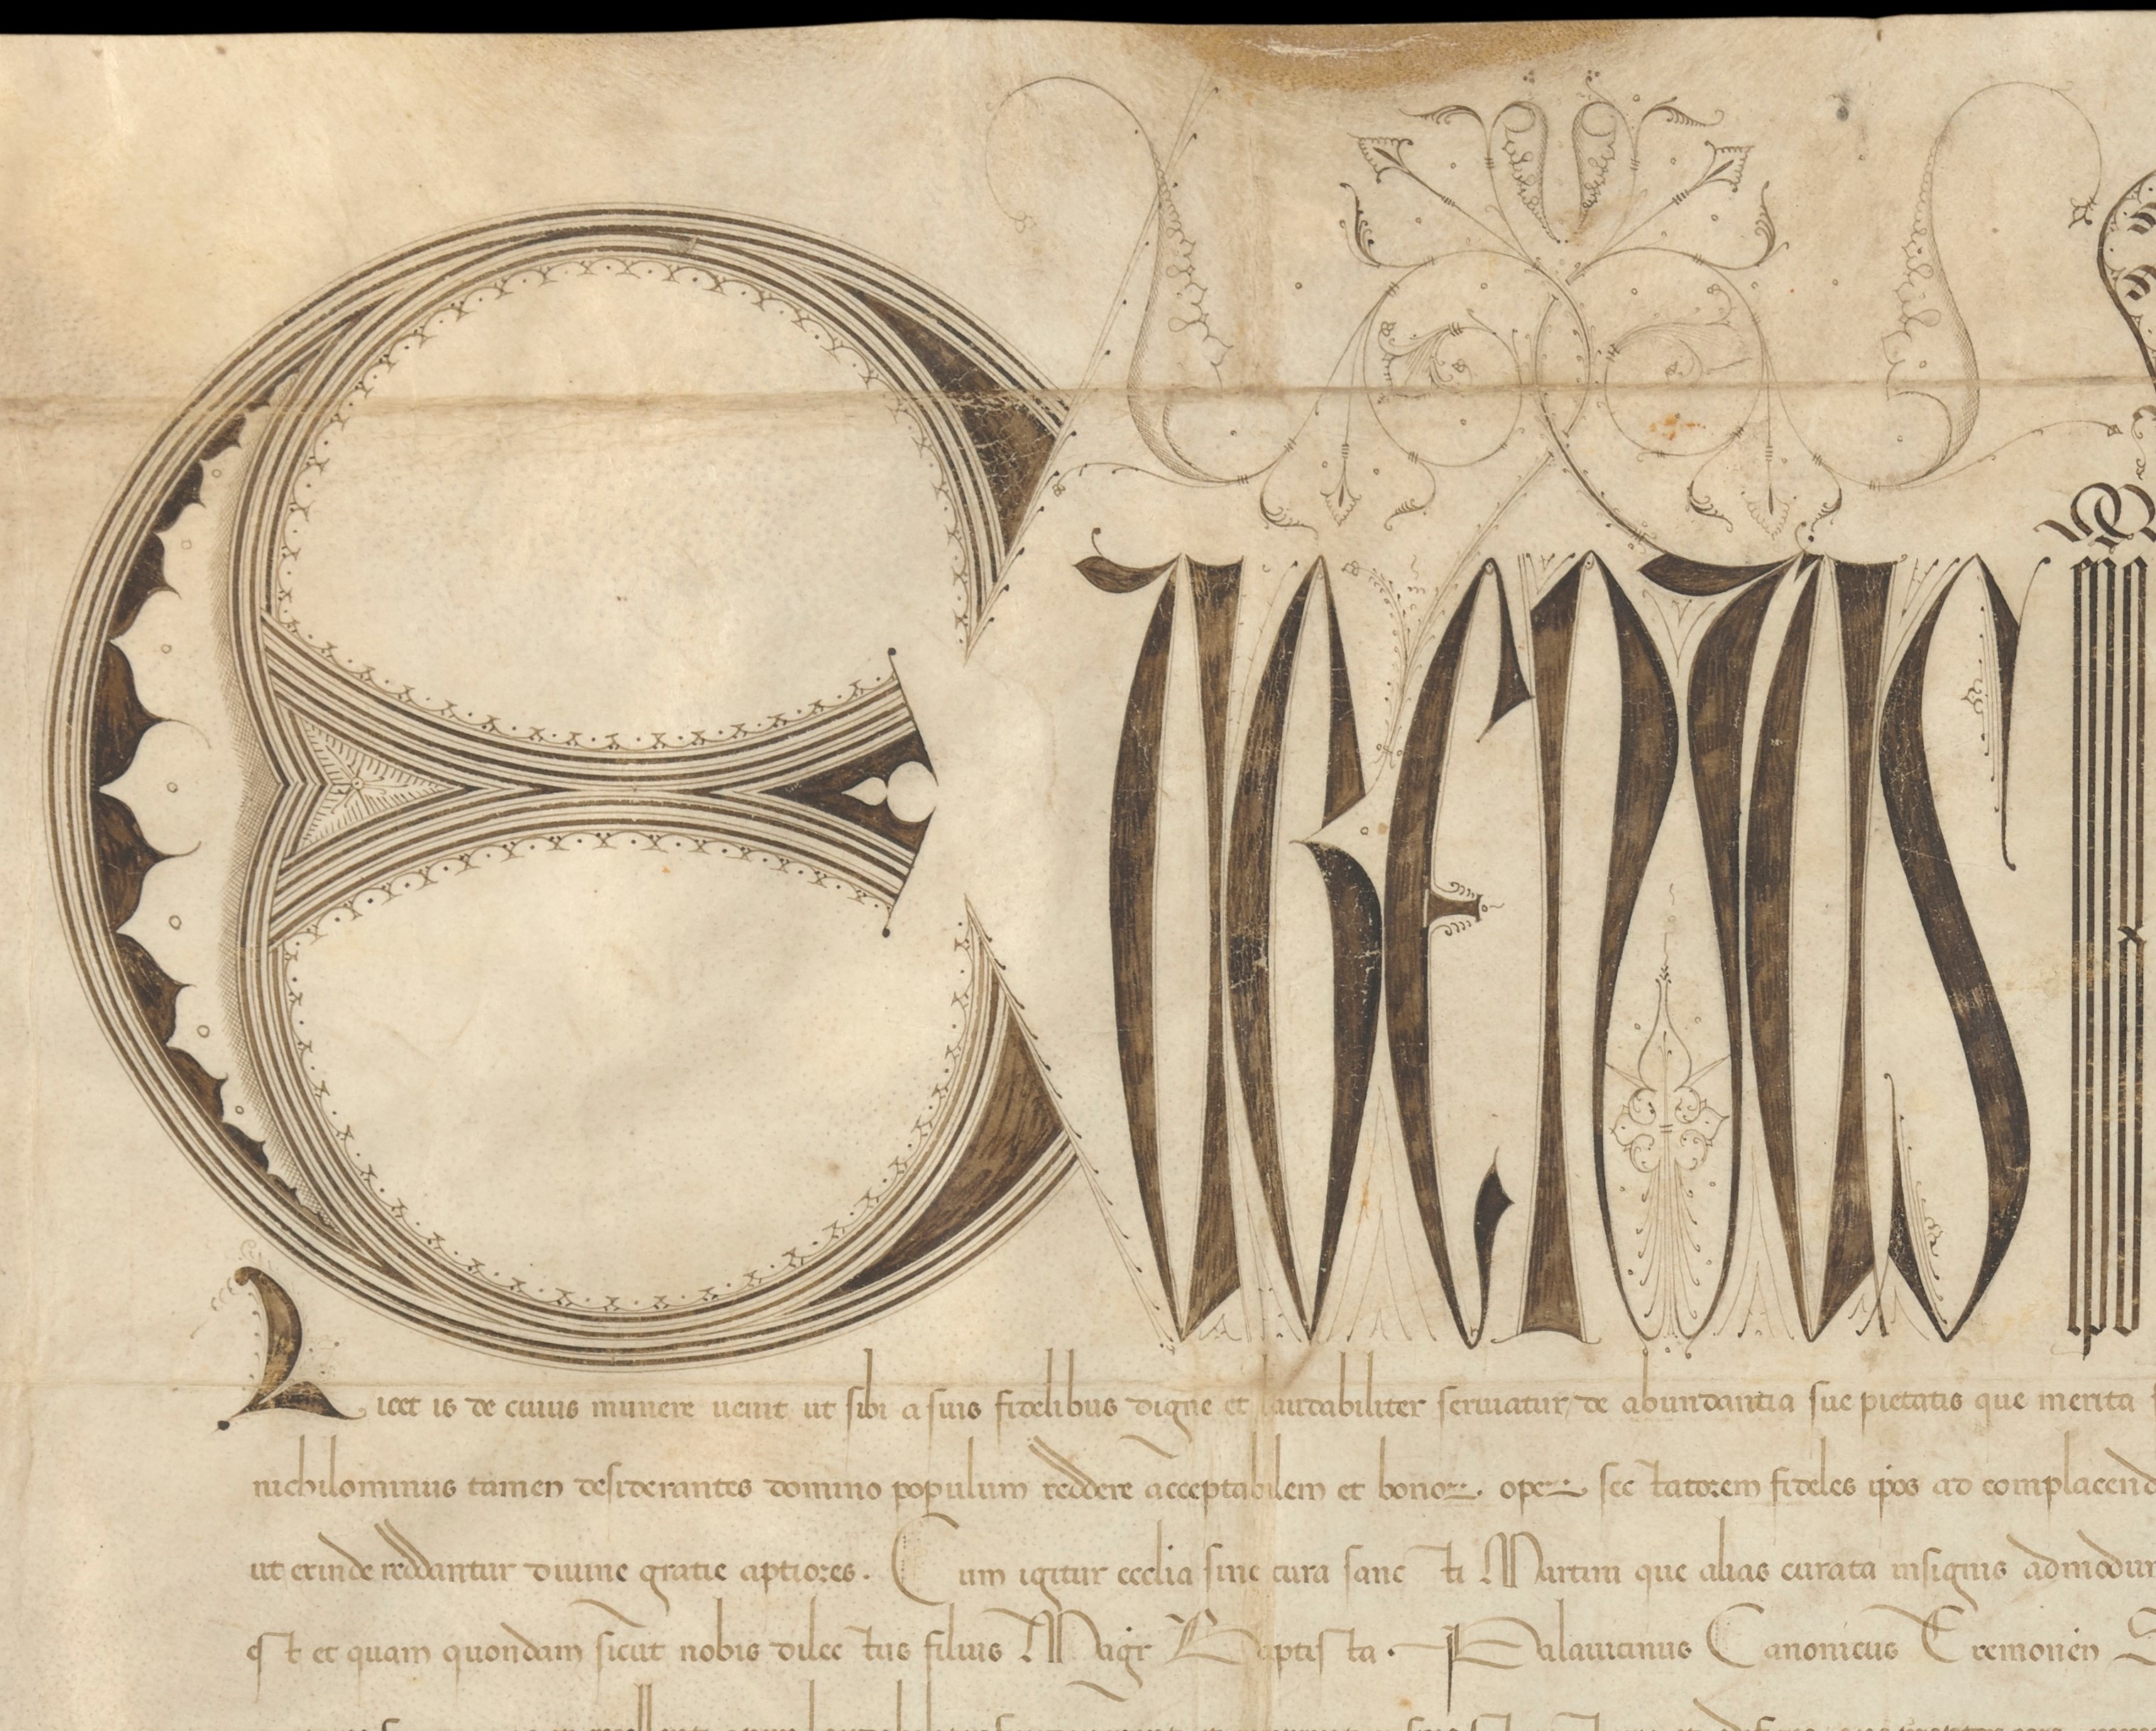 EUGENIUS ep̄s
Licet is de cuius munere uenit ut sibi a suis fidelibus digne et laudabiliter seruiatur de abundantia sue pietatis que merita
nichilominus tamen desiderantes domino populum reddere acceptabilem et bonoꝝ opeꝝ sectatorem fideles ip̄os ad complacend
ut exinde reddantur diuine gratie aptiores. Cum igitur ecclia sine cura sancti Martini que alias curata insignis admodum
est et quam quondam sicut nobis dilectus filius Magr Baptista Palauicinus Canonicus Cremonen̄